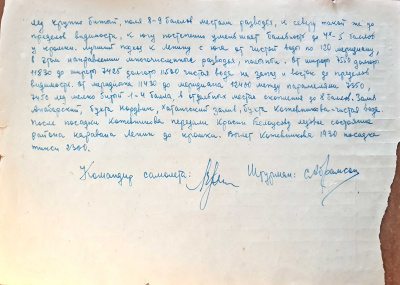 лед крупно битый, поля 8-9 баллов местами разводья, к северу такой же до
пределов видимости, к югу постепенно уменьшает балльность до 4-5 баллов
у кромки. Лучший подход к Ленину с юга от чистой воды по 120 меридиану,
в этом направлении многочисленные разводья, От широты 7550 долготы
11830 до широты 7425 долготы 1150 чистая вода на запад и восток до пределов
видимости. От меридиана 11430 до меридиана 12400 между параллелями 7350,
7450 лед мелко битый 1-4 балла, в отдельных местах скопление до 6 баллов. Залив
Анабарский, бухта Нордвик, Хатангский залив, бухта Кожевникова - чистая вода.
После посадки Кожевникова передали Красину Белоусову ледовое состояние
района каравана Ленин до кромки. Вылет Кожевникова 1930 посадка
Тикси 2300.
Командир самолета: Штурман: